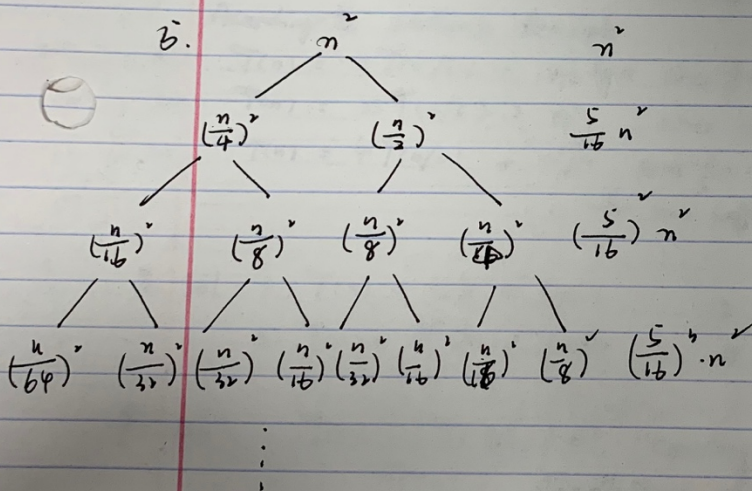 5. n² n²
(n/4)² (n/2)² 5/16 n²
(n/16)² (n/8)² (n/8)² (n/4)² (5/16)² n²
(n/64)² (n/32)² (n/32)² (n/16)² (n/32)² (n/16)² (n/16)² (n/8)² (5/16)⁴·n²